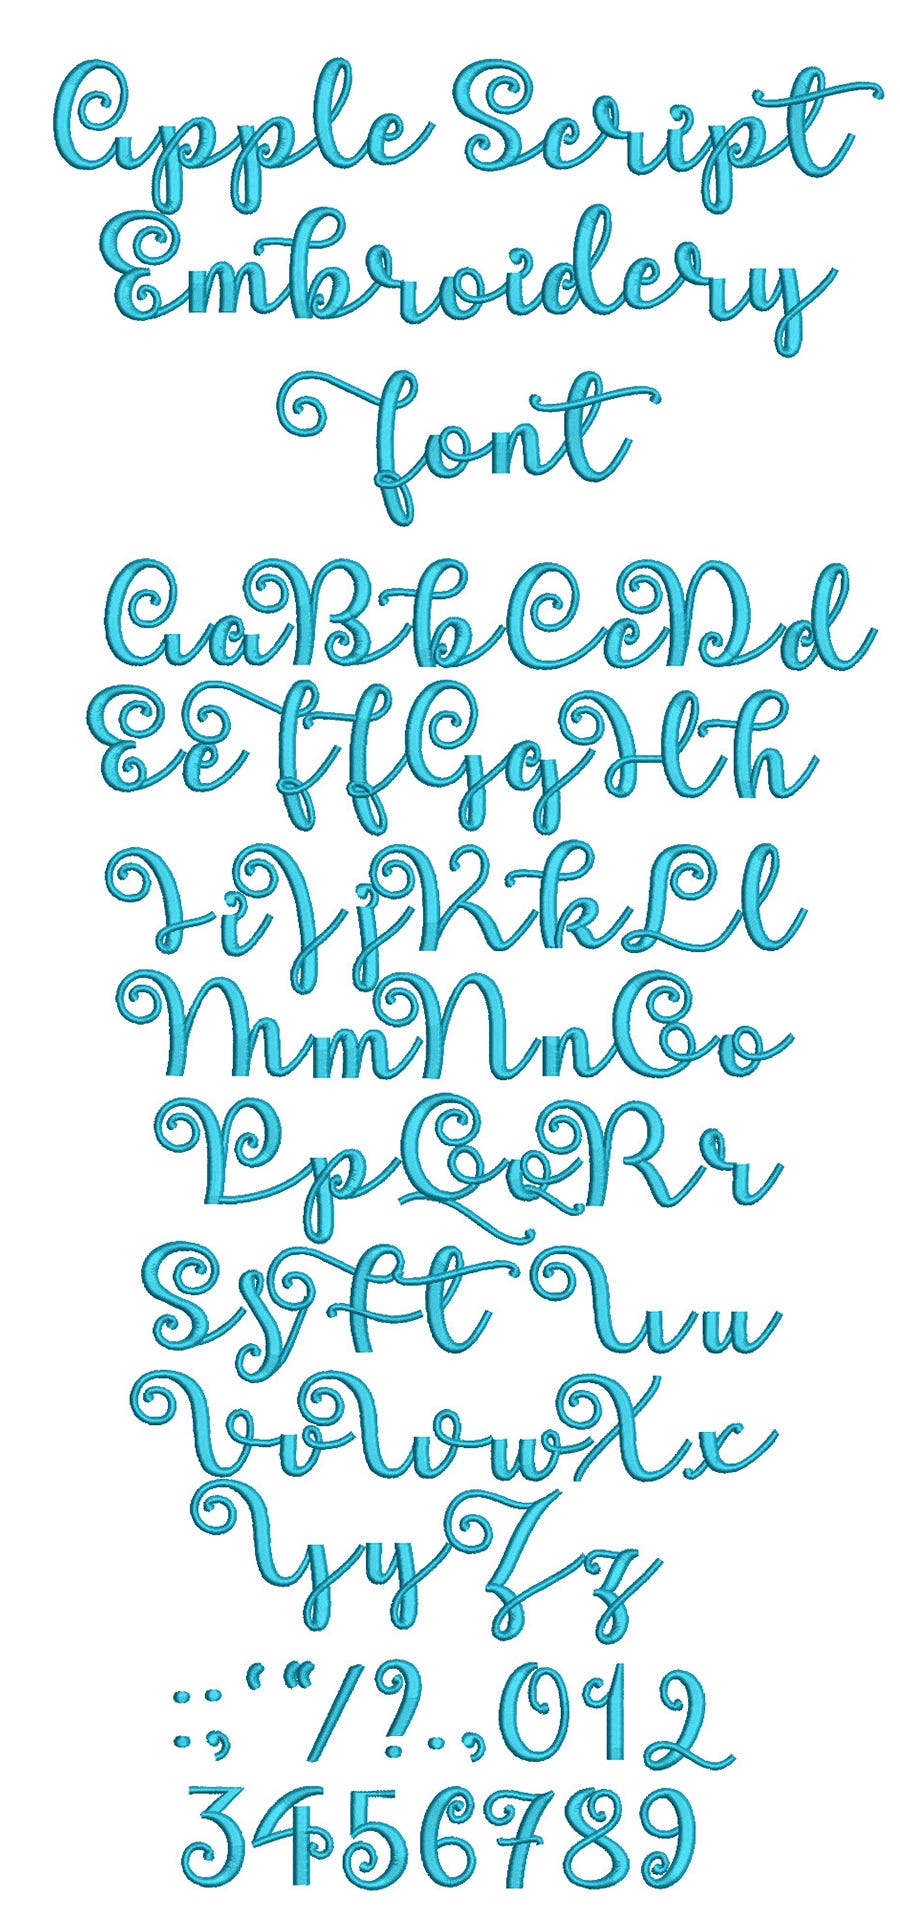 Apple Script
Embroidery
Font
AaBbCcDd
EeFfGgHh
IiJjKkLl
MmNnOo
PpQqRr
SsTtUu
VvWwXx
YyZz
:;‘“/?.,012
3456789